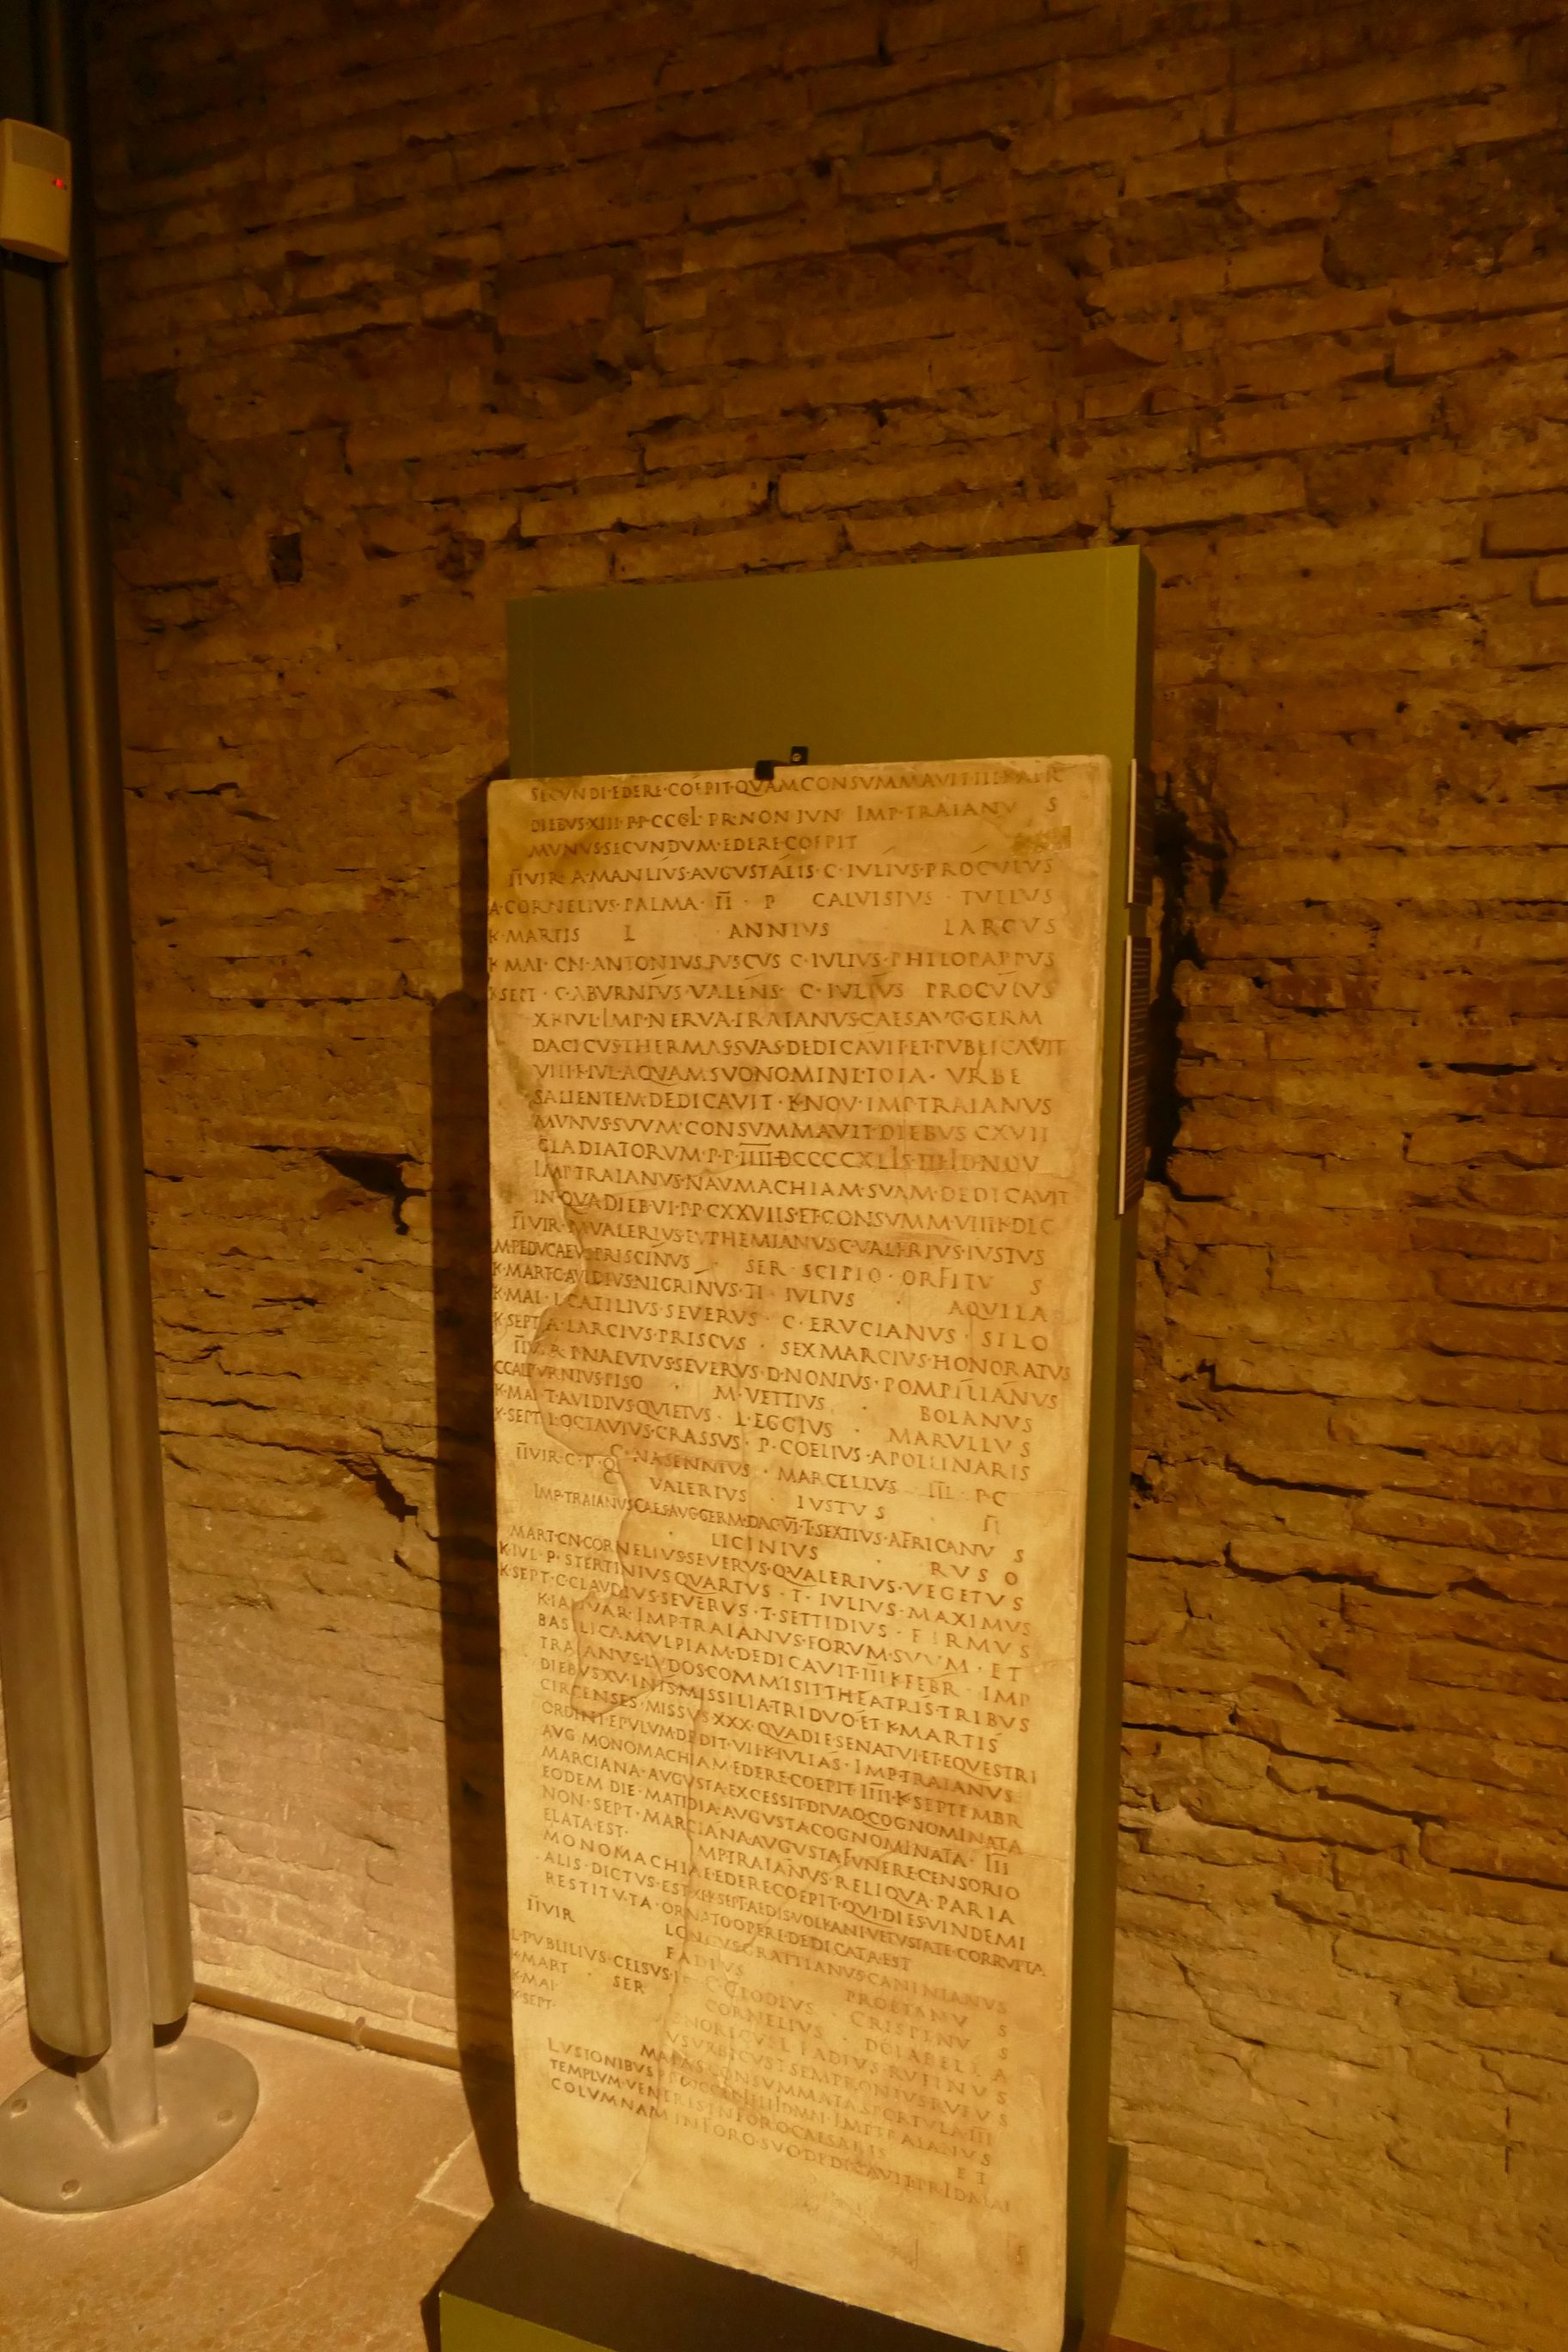 SECVNDI·EDERE·COEPIT·QVAM·CONSVMMAVIT·IIII·K·APR
DIEBVS·XIII·P·P·CCCL· PR·NON IVN IMP·TRAIANV S
MVNVS·SECVNDVM·EDERE·COEPIT
IIVIR·A·MANLIVS·AVGVSTALIS·C·IVLIVS·PROCVLVS
A·CORNELIVS·PALMA· II · P CALVISIVS · TVLLVS
K·MARTIS L ANNIVS LARGVS
K·MAI· CN·ANTONIVS FVSCVS C·IVLIVS·PHILOPAPPVS
K·SEPT · C·ABVRNIVS·VALENS· C·IVLIVS PROCVLVS
X·K·IVL·IMP·NERVA·TRAIANVS·CAES·AVG·GERM
DACICVS·THERMAS·SVAS·DEDICAVIT·ET·PVBLICAVIT
VIII·K·IVL·AQVAM·SVO·NOMINE·TOTA· VRBE
SALIENTEM·DEDICAVIT·K·NOV·IMP·TRAIANVS
MVNVS·SVVM·CONSVMMAVIT·DIEBVS CXVII
GLADIATORVM·P·P·IIII·DCCCCXLIS·III·ID·NOV
IMP·TRAIANVS·NAVMACHIAM·SVAM·DEDICAVIT
IN·QVA·DIEB·VI·P·P·CXXVIIS·ET·CONSVMM·VIIII·K·DEC
IIVIR·M·VALERIVS·EVTHEMIANVS·C·VALERIVS·IVSTVS
M·PEDVCAEVS·PRISCINVS · SER·SCIPIO·ORFITV S
K·MART·C·AVIDIVS·NIGRINVS·TI· IVLIVS · AQVILA
K·MAI·L·CATILIVS·SEVERVS · C·ERVCIANVS·SILO
K·SEPT·A·LARCIVS·PRISCVS · SEX·MARCIVS·HONORATVS
IIVIR·P·NAEVIVS·SEVERVS·D·NONIVS·POMPILIANVS
C·CALPVRNIVS·PISO · M·VETTIVS · BOLANVS
K·MAI·T·AVIDIVS·QVIETVS · L·EGGIVS · MARVLLV S
K·SEPT·L·OCTAVIVS·CRASSVS· P·COELIVS·APOLLINARIS
IIVIR·C·P·Q C·NASENNIVS · MARCELLVS III P·C
VALERIVS · IVSTV S · II
IMP·TRAIANVS·CAES·AVG·GERM·DAC·VI·T·SEXTIVS·AFRICANV S
· LICINIVS · RVSO
MART·CN·CORNELIVS·SEVERVS·Q·VALERIVS·VEGETVS
K·IVL·P·STERTINIVS·QVARTVS · T·IVLIVS·MAXIMVS
K·SEPT·C·CLAVDIVS·SEVERVS·T·SETTIDIVS·FIRMVS
K·IANVAR·IMP·TRAIANVS·FORVM·SVVM·ET
BASILICAM·VLPIAM·DEDICAVIT·III·K·FEBR· IMP
TRAIANVS·LVDOS·COMMISIT·THEATRIS·TRIBVS
DIEBVS·XV·IN·IS·MISSILIA·TRIDVO·ET·K·MARTIS
CIRCENSES·MISSVS·XXX·QVA·DIE·SENATVI·ET·EQVESTRI
ORDINI·EPVLVM·DEDIT·VII·K·IVLIAS·IMP·TRAIANVS
AVG MONOMACHIAM·EDERE·COEPIT·IIII·K·SEPTEMBR
MARCIANA·AVGVSTA·EXCESSIT·DIVAQ·COGNOMINATA
EODEM DIE·MATIDIA·AVGVSTA·COGNOMINATA· III
NON·SEPT·MARCIANA·AVGVSTA·FVNERE·CENSORIO
ELATA·EST· IMP·TRAIANVS·RELIQVA·PARIA
MONOMACHIAE·EDERE·COEPIT·QVI·DIES·VINDEMI
ALIS·DICTVS·EST·XII·K·SEPT·AEDIS·VOLKANI·VETVSTATE·CORRVPTA
RESTITVTA·ORNATO·OPERE·DEDICATA·EST
IIVIR LONGVS·GRATTIANVS·CANINIANVS
FADIVS · PROETANV S
L·PVBLILIVS·CELSVS·II C·CLODIVS · CRISPINV S
K·MART · SER CORNELIVS · DOLABELLA
K·MAI· L·FADIVS·RVFINVS
K·SEPT· VRBICVS·T·SEMPRONIVS·RVFVS
CONSVMMATA·SPORTVLA·III
LVSIONIBVS IMP·TRAIANVS
TEMPLVM·VENERIS·IN·FORO·CAESARIS ET
COLVMNAM·IN·FORO·SVO·DEDICAVIT·PR·ID·MAI